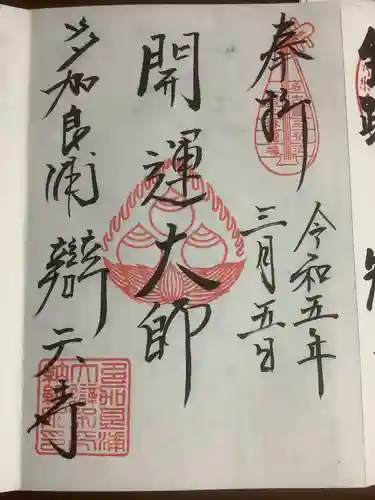 奉拝
令和五年
三月五日
開運大師
多加良浦 辯天寺